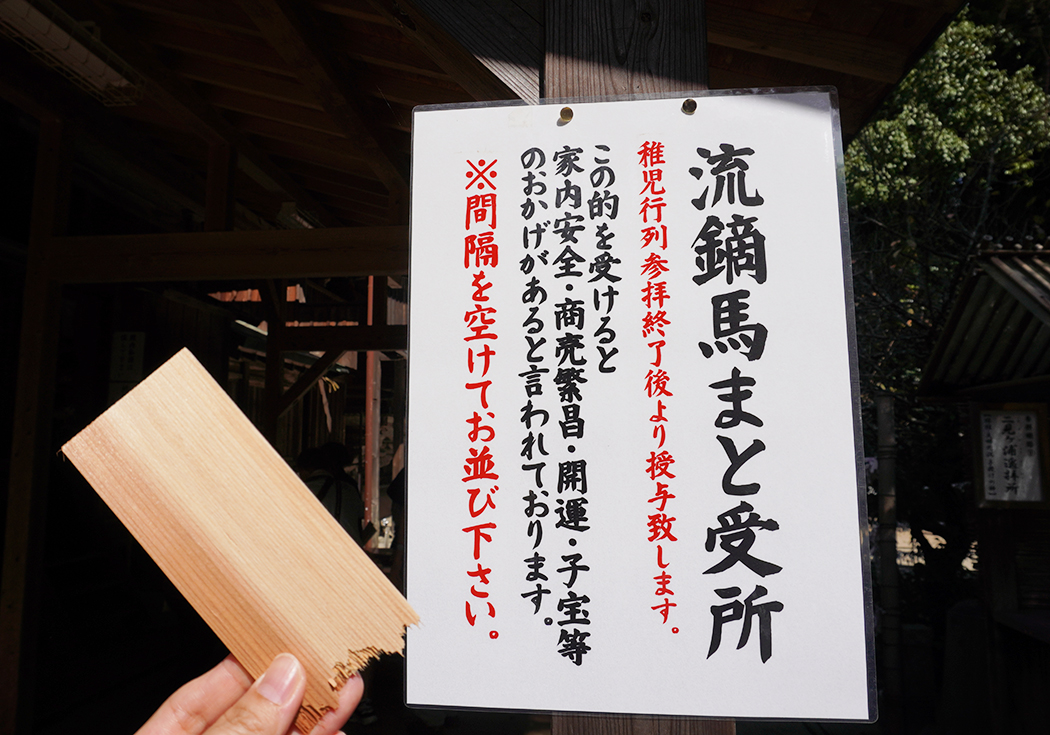 流鏑馬まと受所
稚児行列参拝終了後より授与致します。
この的を受けると
家内安全・商売繁昌・開運・子宝等
のおかげがあると言われております。
※間隔を空けてお並び下さい。